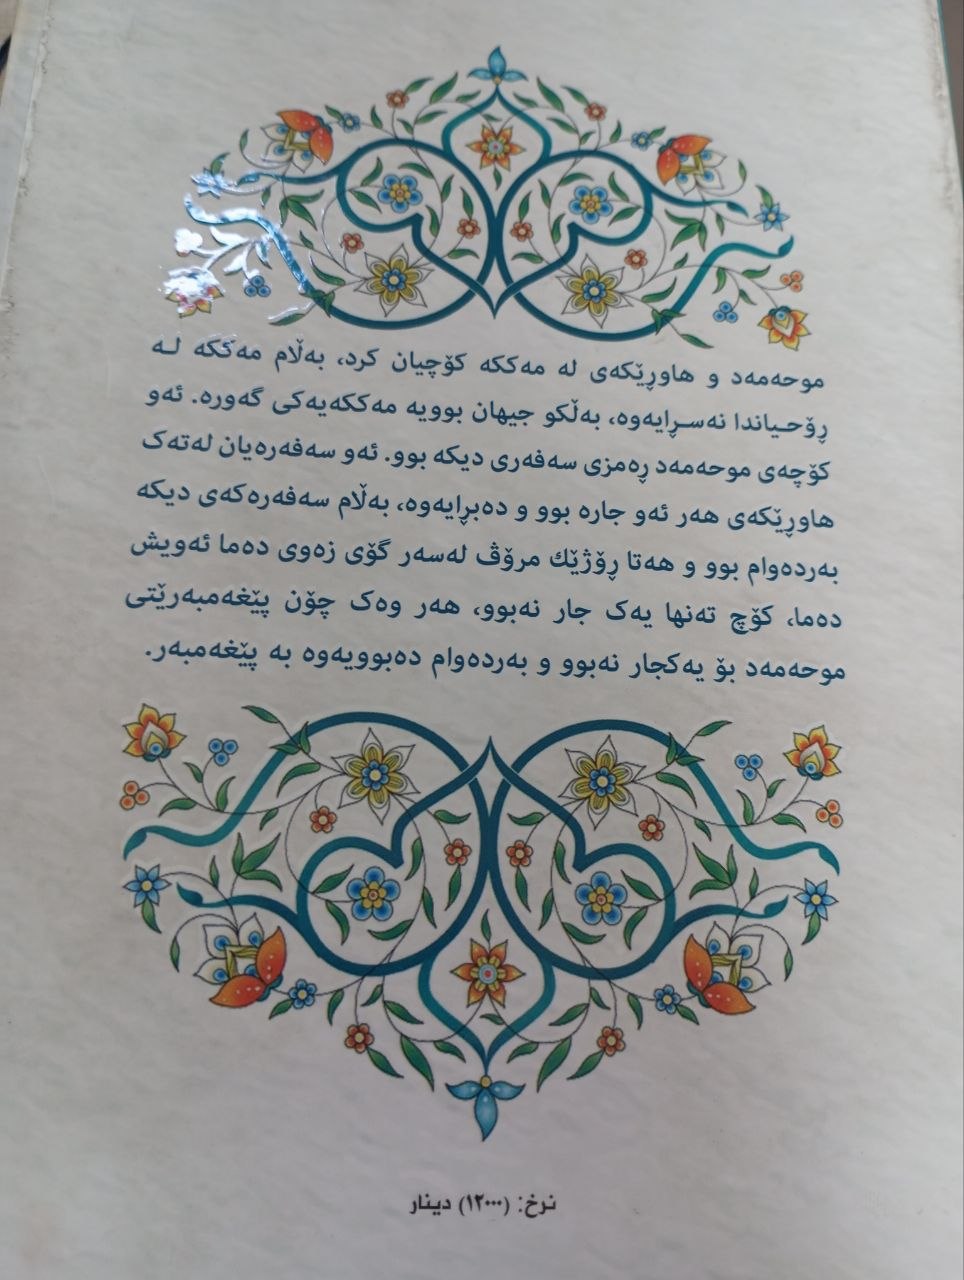 موحەمەد و هاوڕێکەی لە مەککە کۆچیان کرد، بەڵام مەککە لە
ڕۆحیاندا نەسڕایەوە، بەڵکو جیهان بوویە مەککەیەکی گەورە. ئەو
کۆچەی موحەمەد ڕەمزی سەفەری دیکە بوو. ئەو سەفەرەیان لەتەک
هاوڕێکەی هەر ئەو جارە بوو و دەبڕایەوە، بەڵام سەفەرەکەی دیکە
بەردەوام بوو و هەتا ڕۆژێك مرۆڤ لەسەر گۆی زەوی دەما ئەویش
دەما، کۆچ تەنها یەک جار نەبوو، هەر وەک چۆن پێغەمبەرێتی
موحەمەد بۆ یەکجار نەبوو و بەردەوام دەبوویەوە بە پێغەمبەر.
نرخ: (١٢٠٠٠) دینار